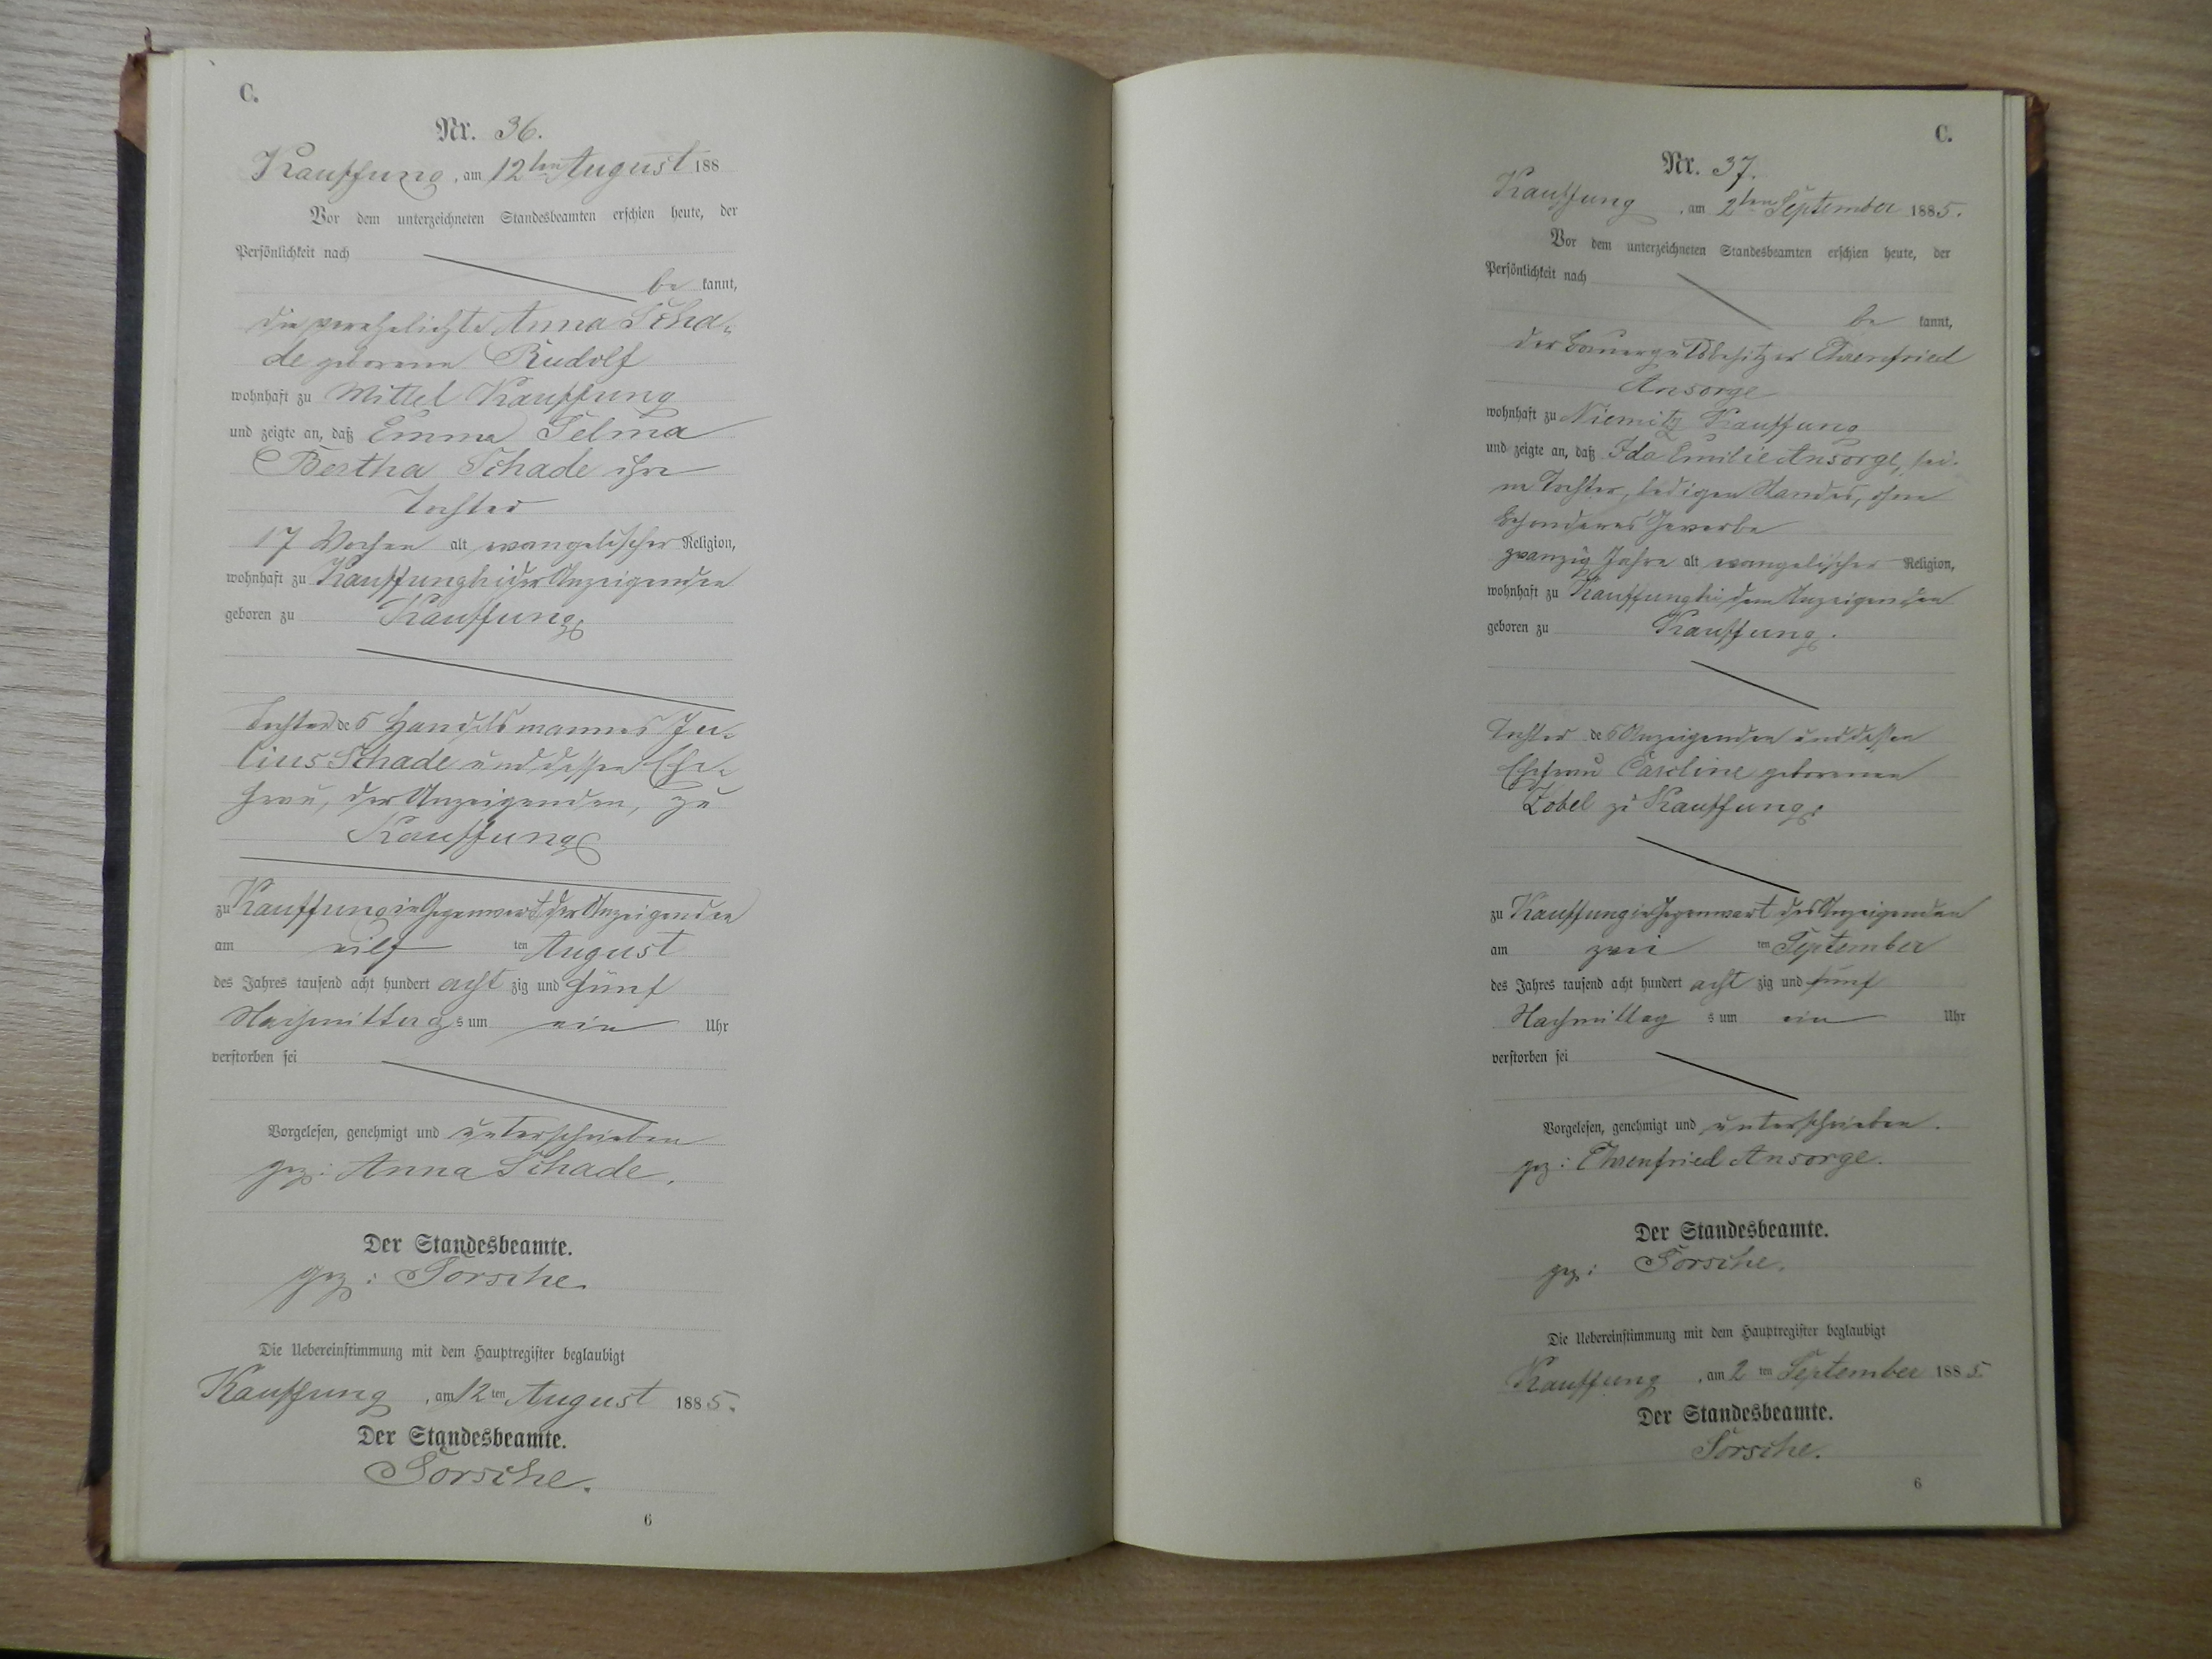 C.
Nr. 36.
Kauffung, am 12ten August 188
Vor dem unterzeichneten Standesbeamten erschien heute, der
Persönlichkeit nach
be kannt,
die verehelichte Anna Scha-
de geborene Rudolf
wohnhaft zu Mittel Kauffung
und zeigte an, daß Emma Selma
Bertha Schade ihre
Tochter
17 Wochen alt evangelischer Religion,
wohnhaft zu Kauffung bei der Anzeigenden
geboren zu Kauffung
Tochter des Handelsmannes Ju-
lius Schade und dessen Ehe-
frau, der Anzeigenden, zu
Kauffung
zu Kauffung in Gegenwart der Anzeigenden
am eilf ten August
des Jahres tausend acht hundert acht zig und fünf
Nachmittags um ein Uhr
verstorben sei
Vorgelesen, genehmigt und unterschrieben
gez: Anna Schade.
Der Standesbeamte.
gez: Torsche.
Die Uebereinstimmung mit dem Hauptregister beglaubigt
Kauffung, am 12ten August 1885.
Der Standesbeamte.
Torsche.
6
C.
Nr. 37.
Kauffung, am 2ten September 1885.
Vor dem unterzeichneten Standesbeamten erschien heute, der
Persönlichkeit nach
be kannt,
der Bauergutsbesitzer Ehrenfried
Ansorge
wohnhaft zu Niemitz Kauffung
und zeigte an, daß Ida Emilie Ansorge, sei-
ne Tochter, ledigen Standes, ohne
besonderes Gewerbe
zwanzig Jahre alt evangelischer Religion,
wohnhaft zu Kauffung bei dem Anzeigenden
geboren zu Kauffung.
Tochter des Anzeigenden und dessen
Ehefrau Caroline geborenen
Zobel zu Kauffung.
zu Kauffung in Gegenwart des Anzeigenden
am zwei ten September
des Jahres tausend acht hundert acht zig und fünf
Nachmittag s um ein Uhr
verstorben sei
Vorgelesen, genehmigt und unterschrieben.
gez: Ehrenfried Ansorge.
Der Standesbeamte.
gez: Torsche.
Die Uebereinstimmung mit dem Hauptregister beglaubigt
Kauffung, am 2 ten September 1885.
Der Standesbeamte.
Torsche.
6